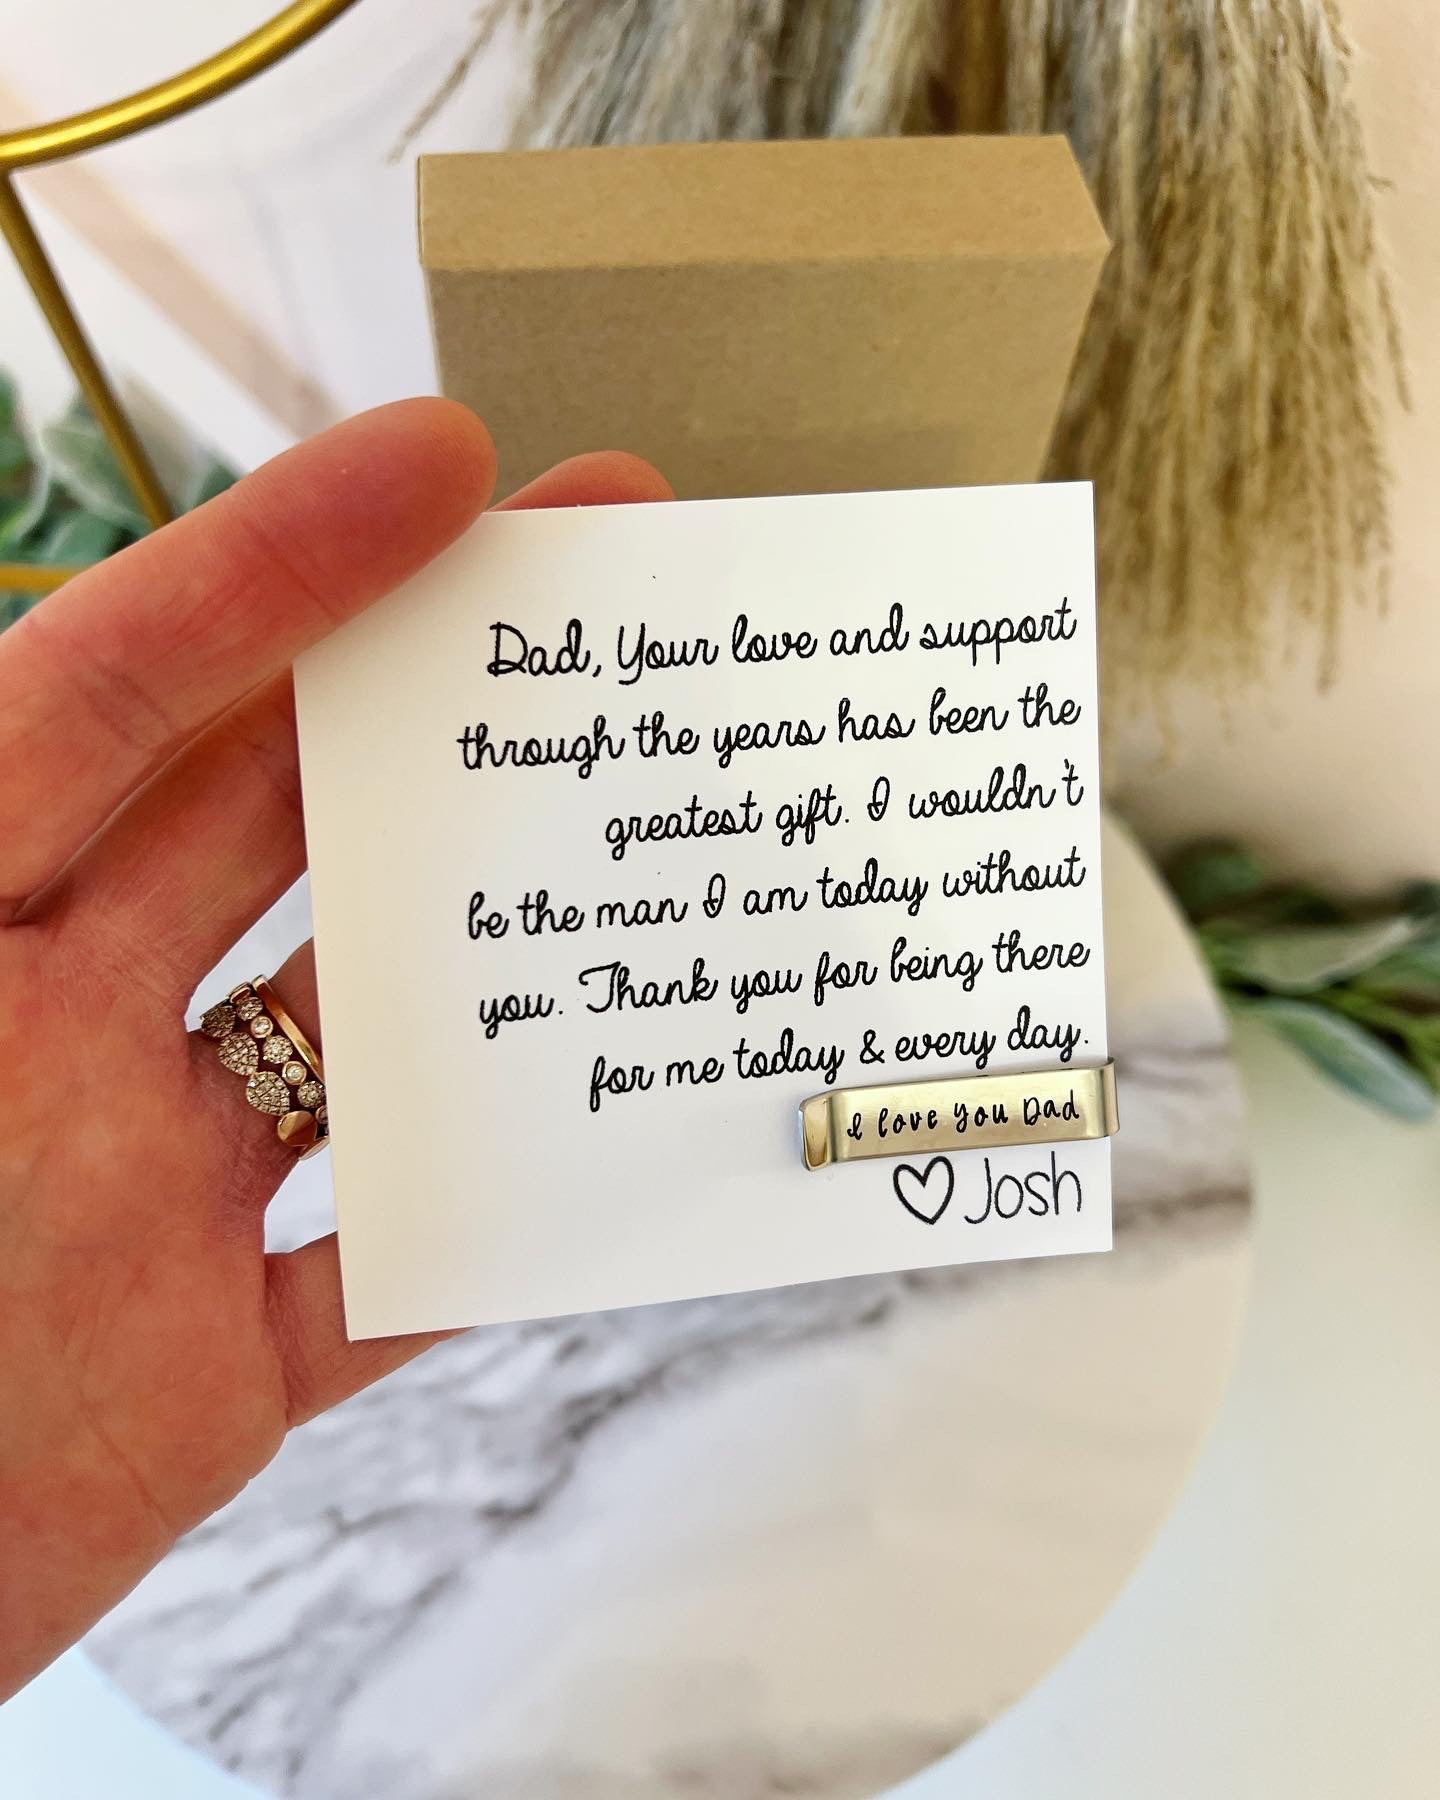 Dad, Your love and support
through the years has been the
greatest gift. I wouldn't
be the man I am today without
you. Thank you for being there
for me today & every day.
I love you Dad
♡ Josh